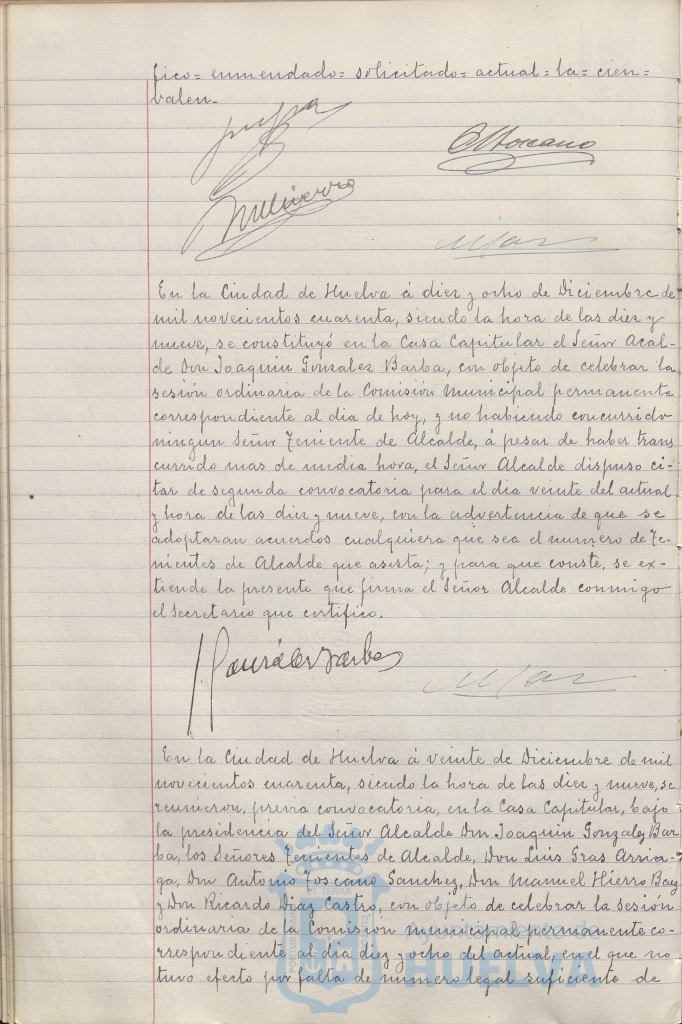 fico= enmendado= solicitado= actual= la= cien=
valen-
A Toscano
En la Ciudad de Huelva á diez y ocho de Diciembre de
mil novecientos cuarenta, siendo la hora de las diez y
nueve, se constituyó en la Casa Capitular el Señor Acal-
de Don Joaquin Gonzalez Barba, con objeto de celebrar la
sesión ordinaria de la Comisión Municipal permanente
correspondiente al dia de hoy, y no habiendo concurrido
ningun Señor Teniente de Alcalde, á pesar de haber trans
currido mas de media hora, el Señor Alcalde dispuso ci-
tar de segunda convocatoria para el dia veinte del actual
y hora de las diez y nueve, con la advertencia de que se
adoptaran acuerdos cualquiera que sea el numero de Te-
nientes de Alcalde que asista; y para que conste, se ex-
tiende la presente que firma el Señor Alcalde conmigo
el Secretario que certifico.
J González Barba
En la Ciudad de Huelva á veinte de Diciembre de mil
novecientos cuarenta, siendo la hora de las diez y nueve, se
reunieron, previa convocatoria, en la Casa Capitular, bajo
la presidencia del Señor Alcalde Don Joaquin Gonzalez Bar
ba, los Señores Tenientes de Alcalde, Don Luis Gras Arria-
ga, Don Antonio Toscano Sanchez, Don Manuel Hierro Baez
y Don Ricardo Diaz Castro, con objeto de celebrar la sesión
ordinaria de la Comisión municipal permanente co-
rrespondiente al dia diez y ocho del actual, en el que no
tuvo efecto por falta de numero legal suficiente de
Ayuntamiento de
HUELVA